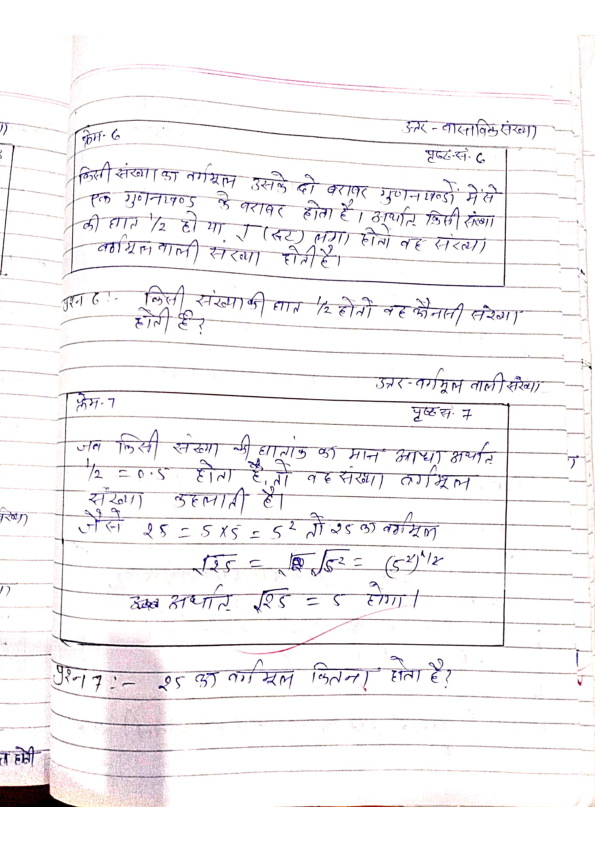 उत्तर - वास्तविक संख्या
फ्रेम- 6
पृष्ठ सं. 6
किसी संख्या का वर्गमूल उसके दो बराबर गुणनखण्डों में से
एक गुणनखण्ड के बराबर होता है। अर्थात किसी संख्या
की घात 1/2 हो या √ (रूट) लगा हो तो वह संख्या
वर्गमूल वाली संख्या होती है।
प्रश्न 6 :- किसी संख्या की घात 1/2 हो तो वह कौनसी संख्या
होती है?
उत्तर - वर्गमूल वाली संख्या
फ्रेम- 7
पृष्ठ सं. 7
जब किसी संख्या की घातांक का मान आधा अर्थात
1/2 = 0.5 होता है, तो वह संख्या वर्गमूल
संख्या कहलाती है।
जैसे 25 = 5 x 5 = 5² तो 25 का वर्गमूल
√25 = √5² = (5²)^1/2
अर्थात √25 = 5 होगा।
प्रश्न 7 :- 25 का वर्गमूल कितना होता है?